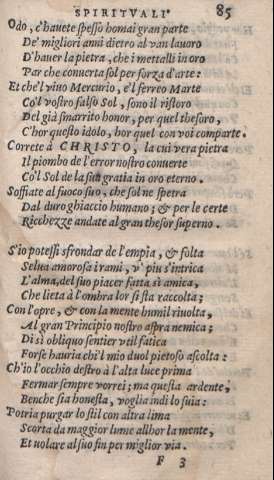 SPIRITVALI 85
Odo, c'hauete spesso homai gran parte
De' migliori anni dietro al van lauoro
D'hauer la pietra, che i mettalli in oro
Par che conuerta sol per forza d'arte:
Et che'l viuo Mercurio, e'l ferreo Marte
Co'l vostro falso Sol, sono il ristoro
Del già smarrito honor, per quel thesoro,
C'hor questo idolo, hor quel con voi comparte.
Correte à CHRISTO, la cui vera pietra
Il piombo de l'error nostro conuerte
Co'l Sol de la sua gratia in oro eterno.
Soffiate al fuoco suo, che sol ne spetra
Dal duro ghiaccio humano; & per le certe
Ricchezze andate al gran thesor superno.
S'io potessi sfrondar de l'empia, & folta
Selua amorosa i rami, v' piu s'intrica
L'alma, del suo piacer fatta si amica,
Che lieta à l'ombra lor si sta raccolta;
Con l'opre, & con la mente humil riuolta,
Al gran Principio nostro aspra nemica;
Di sì obliquo sentier vtil fatica
Forse hauria ch'il mio duol pietoso ascolta:
Ch'io l'occhio destro à l'alta luce prima
Fermar sempre vorrei; ma questa ardente,
Benche sia honesta, voglia indi lo suia:
Potria purgar lo stil con altra lima
Scorta da maggior lume allhor la mente,
Et volare al suo fin per miglior via.
F 3